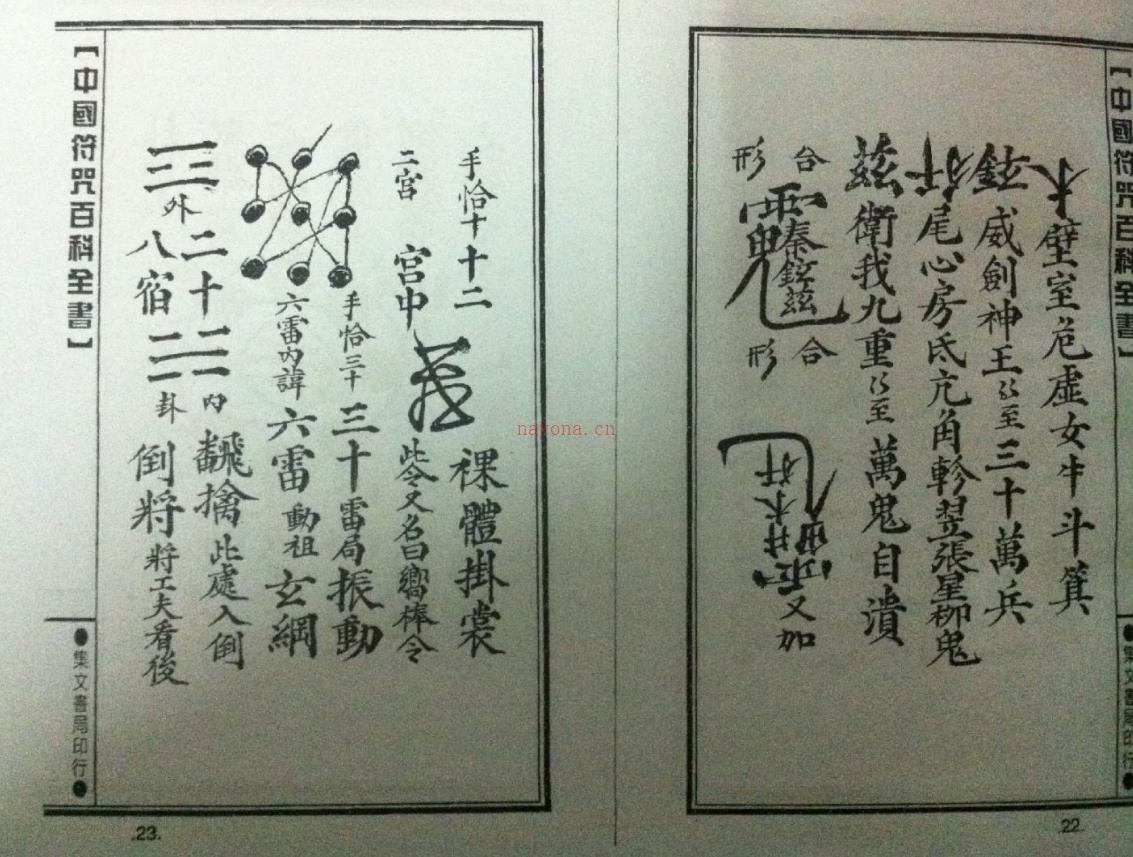 【中國符咒百科全書】
壁室危虛女牛斗箕
威劍神王至三十萬兵
尾心房氐亢角軫翌張星柳鬼
衛我九重至萬鬼自潰
合形
合形
又加
集文書局印行
22
手恰十十二
二宮
宮中
裸體掛裳
此令又名曰嚮棒令
手恰三十
三十雷局振動
六雷內諱
六雷動祖玄綱
二十
內
翻擒此處入倒
外
八宿
卦
倒將將工夫看後
【中國符咒百科全書】
集文書局印行
.23.
nayona.cn